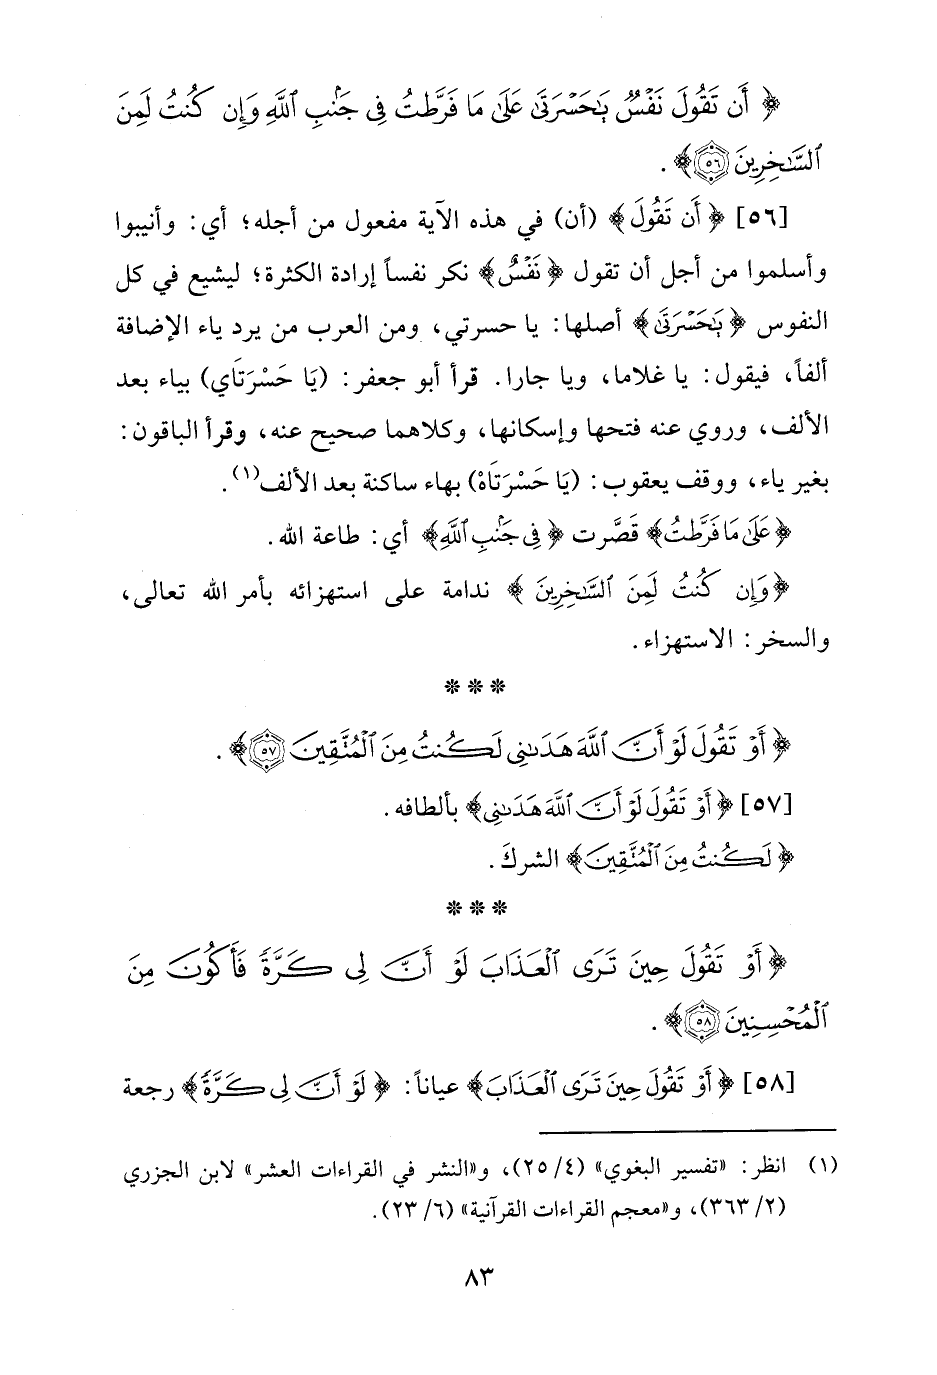 ﴿ أَن تَقُولَ نَفْسٌ يَٰحَسْرَتَىٰ عَلَىٰ مَا فَرَّطتُ فِى جَنۢبِ ٱللَّهِ وَإِن كُنتُ لَمِنَ
ٱلسَّٰخِرِينَ ٥٦﴾ .
[٥٦] ﴿ أَن تَقُولَ﴾ (أن) في هذه الآية مفعول من أجله؛ أي: وأنيبوا
وأسلموا من أجل أن تقول ﴿نَفْسٌ﴾ نكر نفساً إرادة الكثرة؛ ليشيع في كل
النفوس ﴿يَٰحَسْرَتَىٰ﴾ أصلها: يا حسرتي، ومن العرب من يرد ياء الإضافة
ألفاً، فيقول: يا غلاما، ويا جارا. قرأ أبو جعفر: (يَا حَسْرَتَاي) بياء بعد
الألف، وروي عنه فتحها وإسكانها، وكلاهما صحيح عنه، وقرأ الباقون:
بغير ياء، ووقف يعقوب: (يَا حَسْرَتَاهْ) بهاء ساكنة بعد الألف(١).
﴿عَلَىٰ مَا فَرَّطتُ﴾ قَصَّرت ﴿فِى جَنۢبِ ٱللَّهِ﴾ أي: طاعة الله.
﴿وَإِن كُنتُ لَمِنَ ٱلسَّٰخِرِينَ ﴾ ندامة على استهزائه بأمر الله تعالى،
والسخر: الاستهزاء.
* * *
﴿ أَوْ تَقُولَ لَوْ أَنَّ ٱللَّهَ هَدَىٰنِى لَكُنتُ مِنَ ٱلْمُتَّقِينَ ٥٧﴾ .
[٥٧] ﴿ أَوْ تَقُولَ لَوْ أَنَّ ٱللَّهَ هَدَىٰنِى﴾ بألطافه.
﴿ لَكُنتُ مِنَ ٱلْمُتَّقِينَ﴾ الشركَ.
* * *
﴿أَوْ تَقُولَ حِينَ تَرَى ٱلْعَذَابَ لَوْ أَنَّ لِى كَرَّةً فَأَكُونَ مِنَ
ٱلْمُحْسِنِينَ ٥٨﴾ .
[٥٨] ﴿ أَوْ تَقُولَ حِينَ تَرَى ٱلْعَذَابَ﴾ عياناً: ﴿ لَوْ أَنَّ لِى كَرَّةً﴾ رجعة
(١) انظر: «تفسير البغوي» (٤/ ٢٥)، و«النشر في القراءات العشر» لابن الجزري
(٢/ ٣٦٣)، و«معجم القراءات القرآنية» (٦/ ٢٣).
٨٣